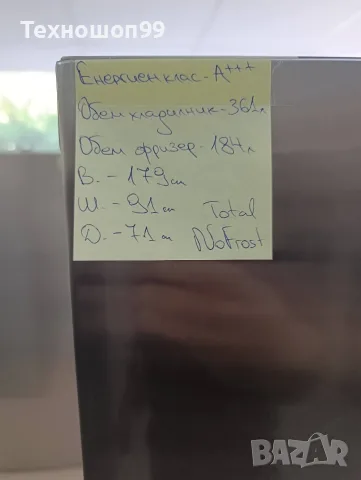 Техношоп99
Енергиен клас - A+++
Обем хладилник - 361л
Обем фризер - 184л
В. - 179см
Ш. - 91см Total
Д. - 71см NoFrost
BAZAR